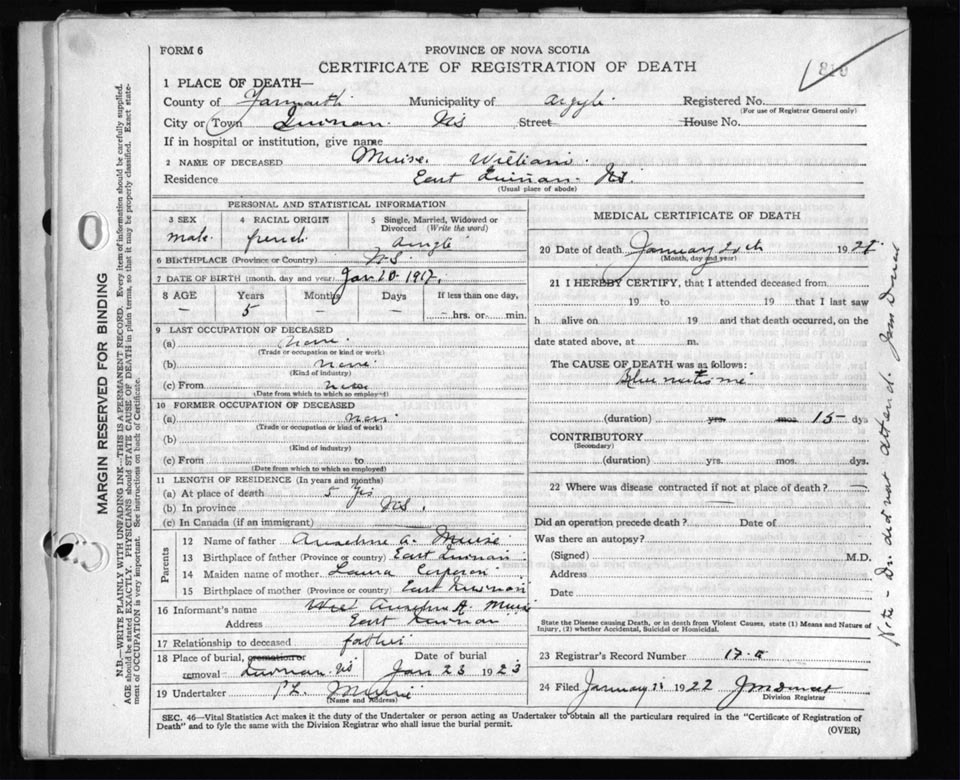 FORM 6
PROVINCE OF NOVA SCOTIA
CERTIFICATE OF REGISTRATION OF DEATH
819
1 PLACE OF DEATH—
County of Yarmouth Municipality of Argyle Registered No.
(For use of Registrar General only)
City or Town Quinan. NS Street House No.
If in hospital or institution, give name
2 NAME OF DECEASED Muise. William.
Residence East Quinan. NS.
(Usual place of abode)
PERSONAL AND STATISTICAL INFORMATION
3 SEX
male
4 RACIAL ORIGIN
french
5 Single, Married, Widowed or Divorced (Write the word)
single
6 BIRTHPLACE (Province or Country) NS
7 DATE OF BIRTH (month, day and year) Jan 20 1917.
8 AGE Years Months Days If less than one day,
— 5 — — — hrs. or — min.
9 LAST OCCUPATION OF DECEASED
(a) none
(Trade or occupation or kind or work)
(b) none
(Kind of industry)
(c) From none
(Date from which to which so employed)
10 FORMER OCCUPATION OF DECEASED
(a) none
(Trade or occupation or kind of work)
(b)
(Kind of industry)
(c) From to
(Date from which to which so employed)
11 LENGTH OF RESIDENCE (In years and months)
(a) At place of death 5 yrs
(b) In province NS.
(c) In Canada (if an immigrant)
Parents
12 Name of father Anselme A. Muise
13 Birthplace of father (Province or country) East Quinan
14 Maiden name of mother. Laura
15 Birthplace of mother (Province or country) East
16 Informant's name Anselme A. Muise
Address East
17 Relationship to deceased father
18 Place of burial, cremation or removal Quinan NS
Date of burial Jan 23 1923
19 Undertaker P L. Muise
(Name and Address)
MEDICAL CERTIFICATE OF DEATH
20 Date of death January 20th 192
(Month, day and year)
21 I HEREBY CERTIFY, that I attended deceased from
19 to 19 that I last saw
h alive on 19 and that death occurred, on the
date stated above, at m.
The CAUSE OF DEATH was as follows:
(duration) yrs. mos. 15 dys
CONTRIBUTORY
(Secondary)
(duration) yrs. mos. dys.
22 Where was disease contracted if not at place of death?
Did an operation precede death? Date of
Was there an autopsy?
(Signed) M.D.
Address
Date
State the Disease causing Death, or in death from Violent Causes, state (1) Means and Nature of
Injury, (2) whether Accidental, Suicidal or Homicidal.
23 Registrar's Record Number 17
24 Filed January 1922
Division Registrar
SEC. 46—Vital Statistics Act makes it the duty of the Undertaker or person acting as Undertaker to obtain all the particulars required in the "Certificate of Registration of
Death" and to fyle the same with the Division Registrar who shall issue the burial permit.
(OVER)
MARGIN RESERVED FOR BINDING
N.B.—WRITE PLAINLY WITH UNFADING INK—THIS IS A PERMANENT RECORD. Every item of information should be carefully supplied.
AGE should be stated EXACTLY. PHYSICIANS should STATE CAUSE OF DEATH in plain terms, so that it may be properly classified. Exact state-
ment of OCCUPATION is very important. See instructions on back of Certificate.
Note - Dr. did not attend.